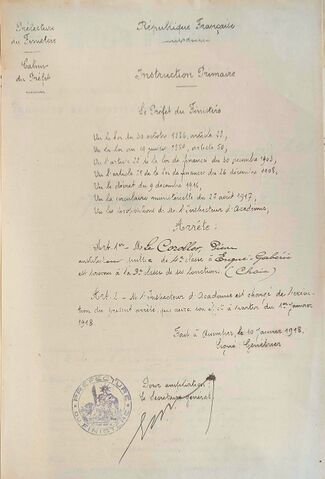 Préfecture
du Finistère
Cabinet
du Préfet
République Française
Instruction Primaire
Le Préfet du Finistère
Vu la loi du 30 octobre 1886, article 22,
Vu la loi du 19 juillet 1889, article 50,
Vu l'article 22 de la loi de finances du 30 décembre 1903,
Vu l'article de la loi de finances du 26 décembre 1908,
Vu le décret du 9 décembre 1916,
Vu la circulaire ministérielle du 27 août 1917,
Vu les propositions de M. l'Inspecteur d'Académie,
Arrête:
Art. 1er - M. Le Corollor,
instituteur public de 4e classe à Ergué-Gabéric
est promu à la 3e classe de ses fonctions (Choix)
Art. 2 - M. l'Inspecteur d'Académie est chargé de l'exécu-
tion du présent arrêté, qui aura son effet à partir du 1er Janvier
1918.
Fait à Quimper, le 10 Janvier 1918.
Signé:
Pour ampliation
Le Secrétaire Général
PREFECTURE
DU FINISTERE